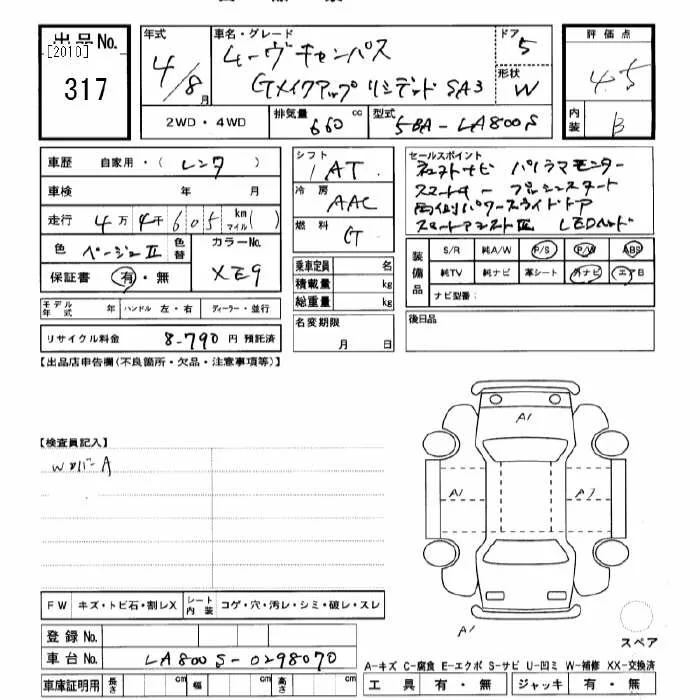 出品No.
[2010]
317
年式
4/8月
車名・グレード
ムーヴキャンバス
Gメイクアップ リミテッド SA3
ドア
5
形状
W
評価点
4.5
内装
B
2WD・4WD
排気量 660 cc
型式 5BA-LA800S
車歴 自家用・(レンタ)
車検 年 月
走行 4万4千605 km マイル( )
色 ベージュII
色替
カラーNo.
XE9
保証書 有・無
モデル年式 年 ハンドル 左・右 ディーラー・並行
リサイクル料金 8-790 円 預託済
シフト
AT
冷房
AAC
燃料
G
乗車定員 名
積載量 kg
総重量 kg
名変期限
月 日
セールスポイント
パノラマモニター
両側パワースライドドア
LEDヘッド
装備品
S/R 純A/W P/S P/W ABS
純TV 純ナビ 革シート 外ナビ エアB
ナビ型番:
後日品
【出品店申告欄(不良箇所・欠品・注意事項等)】
【検査員記入】
WカバーA
A1
A1
A1
FW キズ・トビ石・割レX シート内装 コゲ・穴・汚レ・シミ・破レ・スレ
登録No.
車台No. LA800S-0298070
車庫証明用 長さ cm 幅 cm 高さ cm
スペア
A-キズ C-腐食 E-エクボ S-サビ U-凹ミ W-補修 XX-交換済
工具 有・無 ジャッキ 有・無